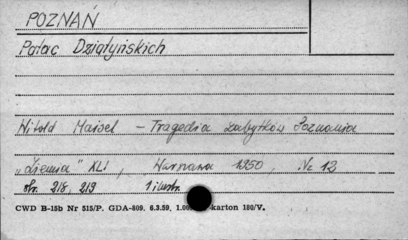 POZNAŃ
Pałac Działyńskich
Witold Maisel – Tragedia zabytków Poznania
„Ziemia" XLI, Warszawa 1950, Nr 12
str. 218, 219 1 ilustr.
CWD B-15b Nr 515/P. GDA-809. 6.3.59, 1.00 -karton 180/V.